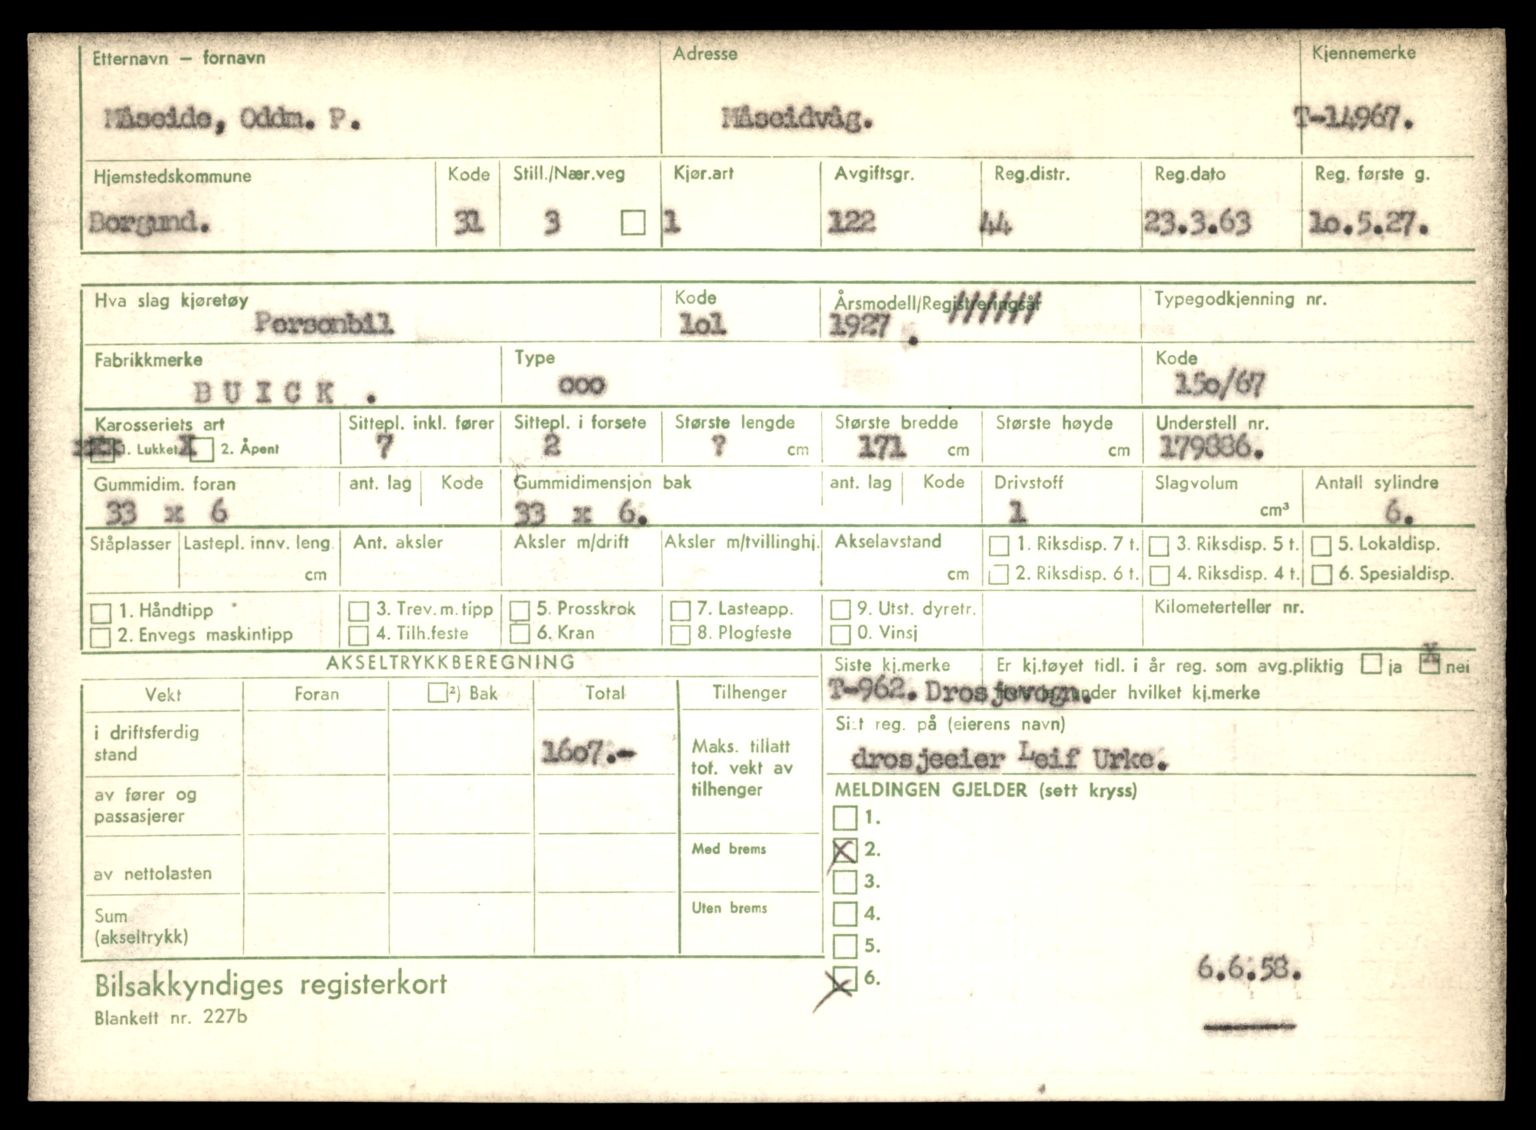 Etternavn – fornavn Adresse Kjennemerke
Måseide, Oddm. P. Måseidvåg. T-14967.
Hjemstedskommune Kode Still./Nær.veg Kjør.art Avgiftsgr. Reg.distr. Reg.dato Reg. første g.
Borgund. 31 3 1 122 44 23.3.63 1o.5.27.
Hva slag kjøretøy Kode Årsmodell/Registreringsår Typegodkjenning nr.
Personbil 1o1 1927 .
Fabrikkmerke Type Kode
BUICK . ooo 15o/67
Karosseriets art Sittepl. inkl. fører Sittepl. i forsete Største lengde Største bredde Største høyde Understell nr.
1. Lukket X 2. Åpent 7 2 ? cm 171 cm cm 179886.
Gummidim. foran ant. lag Kode Gummidimensjon bak ant. lag Kode Drivstoff Slagvolum Antall sylindre
33 x 6 33 x 6. 1 cm³ 6.
Ståplasser Lastepl. innv. leng. Ant. aksler Aksler m/drift Aksler m/tvillinghj. Akselavstand 1. Riksdisp. 7 t. 3. Riksdisp. 5 t. 5. Lokaldisp.
cm cm 2. Riksdisp. 6 t. 4. Riksdisp. 4 t. 6. Spesialdisp.
1. Håndtipp 3. Trev.m.tipp 5. Prosskrok 7. Lasteapp. 9. Utst. dyretr. Kilometerteller nr.
2. Envegs maskintipp 4. Tilh.feste 6. Kran 8. Plogfeste 0. Vinsj
AKSELTRYKKBEREGNING Siste kj.merke Er kj.tøyet tidl. i år reg. som avg.pliktig ja X nei
Vekt Foran ²) Bak Total Tilhenger T-962. Drosjevogn. under hvilket kj.merke
i driftsferdig stand 16o7.- Maks. tillatt tot. vekt av tilhenger Sist reg. på (eierens navn)
drosjeeier Leif Urke.
av fører og passasjerer MELDINGEN GJELDER (sett kryss)
1.
Med brems X 2.
av nettolasten 3.
Uten brems 4.
Sum (akseltrykk) 5.
X 6. 6.6.58.
Bilsakkyndiges registerkort
Blankett nr. 227b